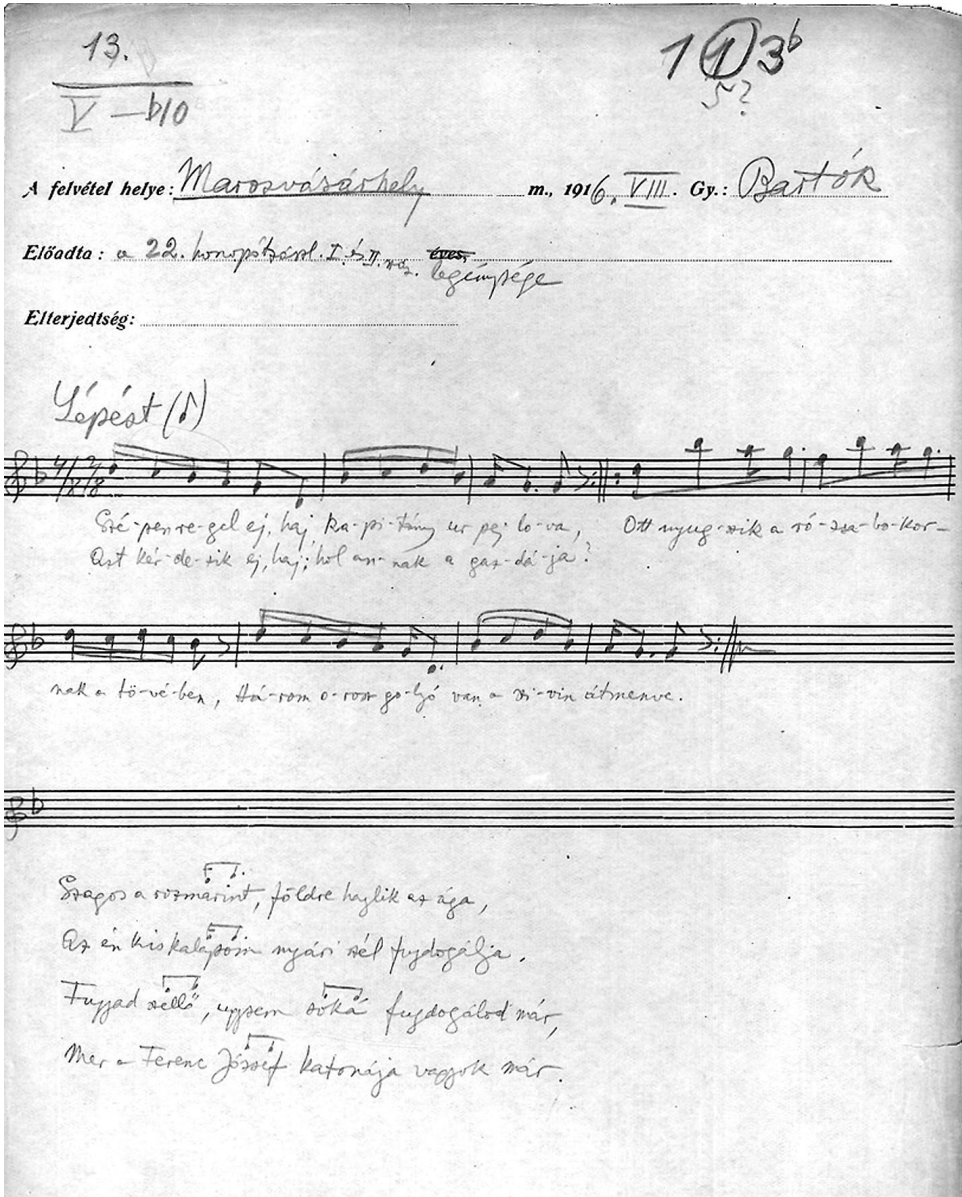 13.
V — b10
1 1 3b
5?
A felvétel helye: Marosvásárhely m., 1916. VIII. Gy.: Bartók
Előadta: a 22. honvéd I. és II. éves, legénysége
Elterjedtség:
Lépést (♪)
4/8 2/8
Szé-pen re-gel ej, haj, ka-pi-tány ur pej-lo-va, Ott nyug-szik a ró-zsa-bo-kor-
Aszt kér-de-zik ej, haj; hol an-nak a gaz-dá-ja?
nak a tö-vé-ben, Há-rom o-rosz go-ljó van a szi-vin átmenve.
Szagos a rozmarint, földre hajlik az ága,
Az én kis kalapom nyári szél fujdogálja.
Fujjad szellő, ugysem soká fujdogálod már,
Mer a Ferenc József katonája vagyok már.